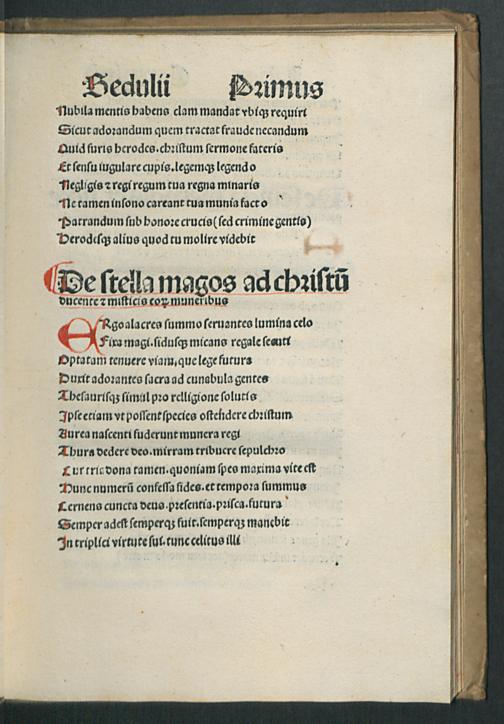 Sedulii Primus
Nubila mentis habens clam mandat vbiqꝫ requiri
Sicut adorandum quem tractat fraude necandum
Quid furis herodes. christum sermone fateris
Et sensu iugulare cupis. legemqꝫ legendo
Negligis ⁊ regi regum tua regna minaris
Ne tamen insono careant tua munia facto
Patrandum sub honore crucis (sed crimine gentis)
Herodesqꝫ alius quod tu molire videbit
De stella magos ad christū
ducente ⁊ misticis eoꝝ muneribus
ERgo alacres summo seruantes lumina celo
Fixa magi. sidusqꝫ micans regale secuti
Optatam tenuere viam, que lege futura
Duxit adorantes sacra ad cunabula gentes
Thesaurisqꝫ simul pro relligione solutis
Ipse etiam vt possent species ostēdere christum
Aurea nascenti fuderunt munera regi
Thura dedere deo. mirram tribuere sepulchro
Cur tria dona tamen. quoniam spes maxima vite est
Hunc numerū confessa fides. et tempora summus
Cernens cuncta deus. presentia. prisca. futura
Semper adest semperqꝫ fuit. semperqꝫ manebit
In triplici virtute sui. tunc celitus illi